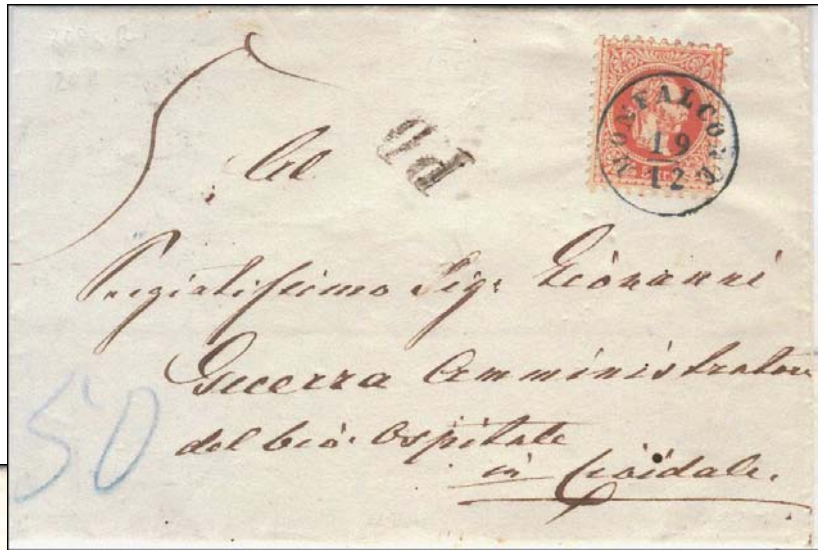 MONFALCONE
19
12
PD
Al
Pregiatissimo Sig: Giovanni
Amministratore
del Civ: Ospitale
in Cividale.
50